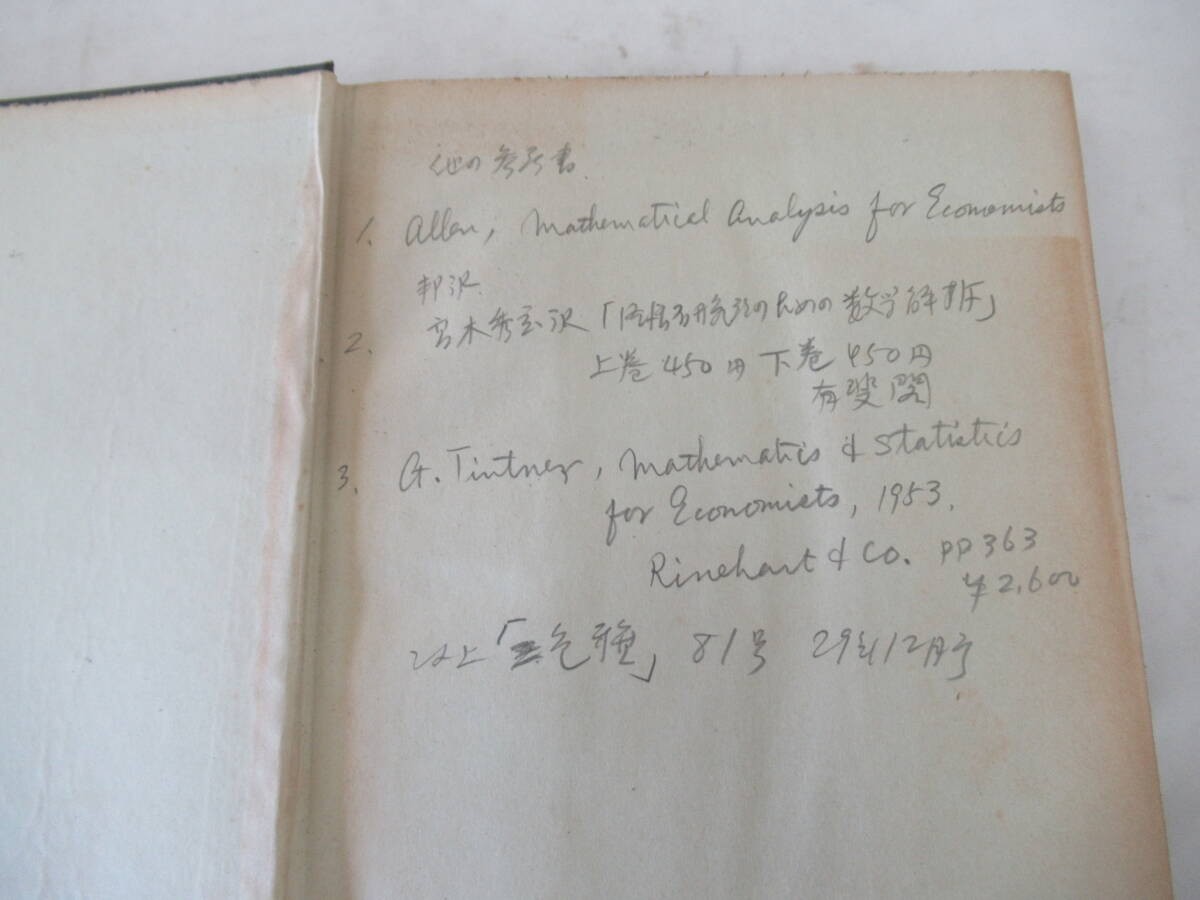 他の参考書.
1. Allen, Mathematical Analysis for Economists
邦沢
2. 高木秀玄沢「経済研究者のための数学解析」
上巻 450円 下巻 450円
有斐閣
3. G. Tintner, Mathematics & Statistics
for Economists, 1953.
Rinehart & Co. pp 363
¥2,600
以上「 」81号 29年12月号